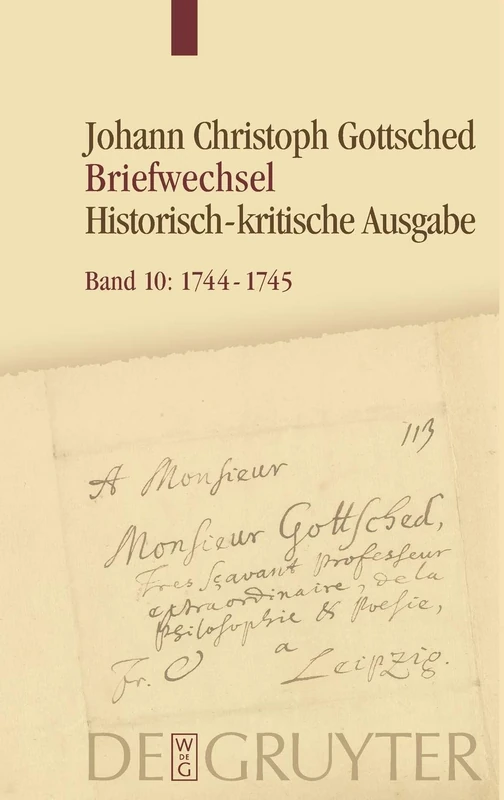 Johann Christoph Gottsched
Briefwechsel
Historisch-kritische Ausgabe
Band 10: 1744-1745
113
A Monsieur
Monsieur Gottsched,
Tres sçavant Professeur
extraordinaire, de la
Philosophie & Poesie,
a
Leipzig.
Fr.
DE GRUYTER
W
DE
G